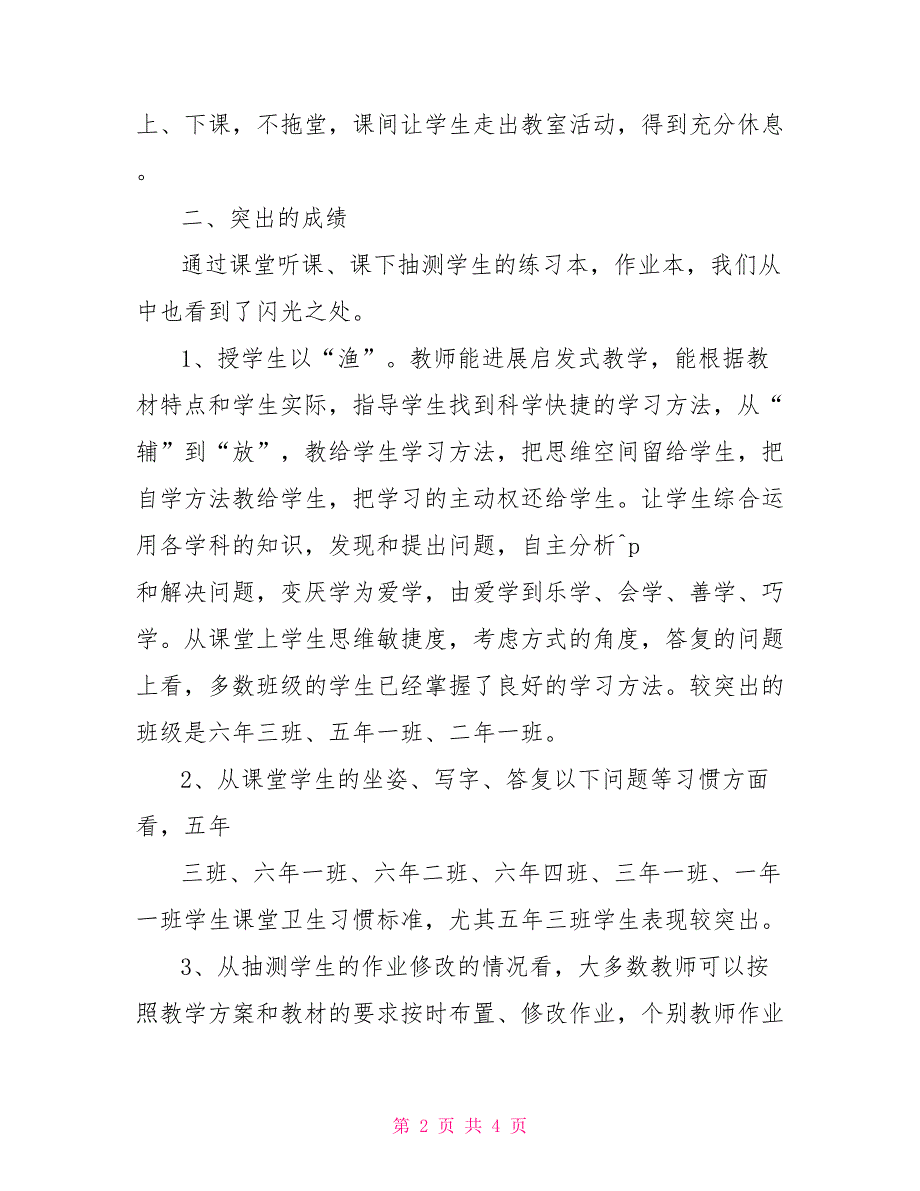 上、下课，不拖堂，课间让学生走出教室活动，得到充分休息
。
二、突出的成绩
通过课堂听课、课下抽测学生的练习本，作业本，我们从
中也看到了闪光之处。
1、授学生以“渔”。教师能进展启发式教学，能根据教
材特点和学生实际，指导学生找到科学快捷的学习方法，从“
辅”到“放”，教给学生学习方法，把思维空间留给学生，把
自学方法教给学生，把学习的主动权还给学生。让学生综合运
用各学科的知识，发现和提出问题，自主分析^p
和解决问题，变厌学为爱学，由爱学到乐学、会学、善学、巧
学。从课堂上学生思维敏捷度，考虑方式的角度，答复的问题
上看，多数班级的学生已经掌握了良好的学习方法。较突出的
班级是六年三班、五年一班、二年一班。
2、从课堂学生的坐姿、写字、答复以下问题等习惯方面
看，五年
三班、六年一班、六年二班、六年四班、三年一班、一年
一班学生课堂卫生习惯标准，尤其五年三班学生表现较突出。
3、从抽测学生的作业修改的情况看，大多数教师可以按
照教学方案和教材的要求按时布置、修改作业，个别教师作业
第 2 页 共 4 页